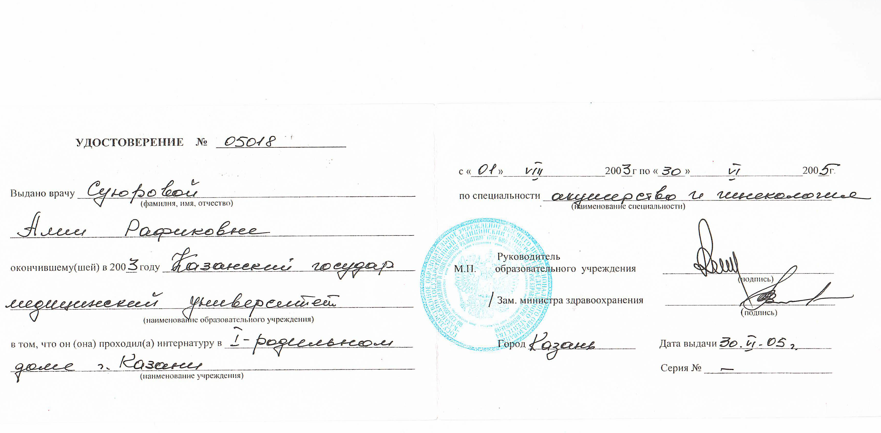 УДОСТОВЕРЕНИЕ № 05018
Выдано врачу Суюровой
(фамилия, имя, отчество)
Алии Рафиковне
окончившему(шей) в 2003 году Казанский государ
медицинский университет
(наименование образовательного учреждения)
в том, что он (она) проходил(а) интернатуру в I-родильном
доме г. Казани
(наименование учреждения)
с « 01 » VIII 2003 г по « 30 » VI 2005 г.
по специальности акушерство и гинекология
(наименование специальности)
Руководитель
М.П. образовательного учреждения
(подпись)
/ Зам. министра здравоохранения
(подпись)
Город Казань Дата выдачи 30.VI-05 г.
Серия № —